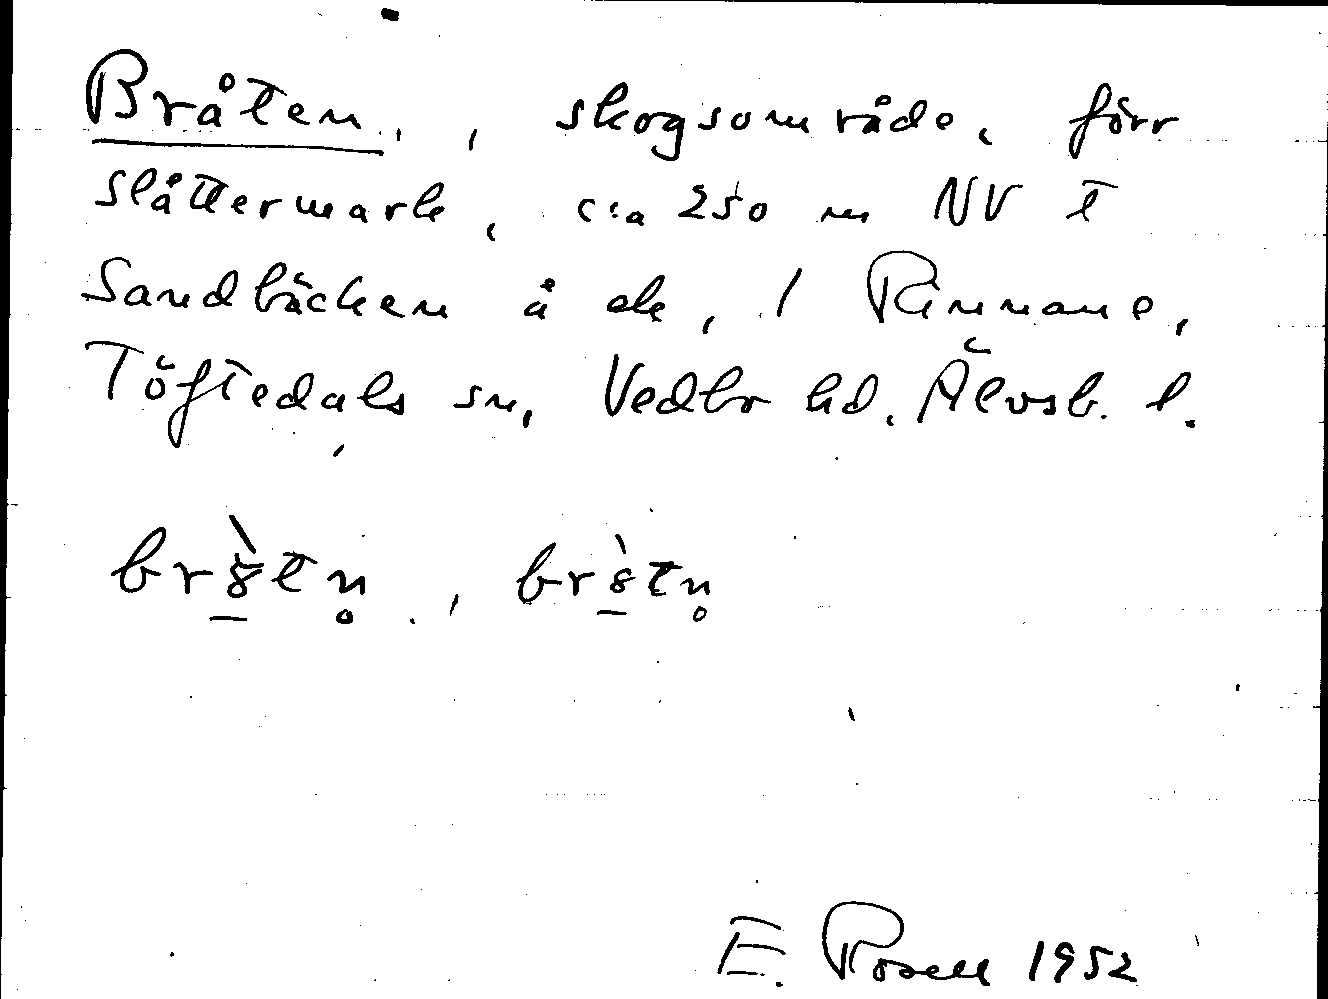 Bråten, skogsområde, förr
slåttermark, c:a 250 m NV t
Sandbäcken å ek, 1 Rinnane,
Töftedals sn, Vedbo hd. Älvsb. l.
E. Rosell 1952